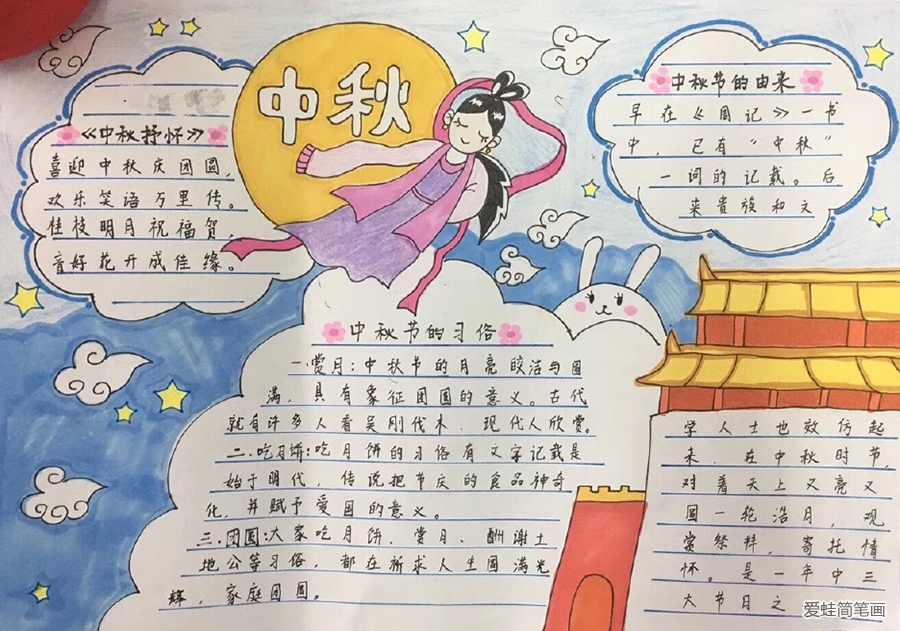 中秋
《中秋抒怀》
喜迎中秋庆团圆，
欢乐笑语万里传。
桂枝明月祝福贺，
音好花开成佳缘。
中秋节的由来
早在《周记》一书
中，已有“中秋”
一词的记载。后
来贵族和文
学人士也效仿起
来，在中秋时节，
对着天上又亮又
圆一轮浩月，观
赏祭拜，寄托情
怀。是一年中三
大节日之
中秋节的习俗
一.赏月：中秋节的月亮皎洁与圆
满，具有象征团圆的意义。古代
就有许多人看吴刚伐木、现代人欣赏。
二.吃习饼：吃月饼的习俗有文字记载是
始于明代，传说把节庆的食品神奇
化，并赋予爱国的意义。
三.团圆：大家吃月饼、赏月、酬谢土
地公等习俗，都在祈求人生圆满光
辉，家庭团圆。
爱蛙简笔画